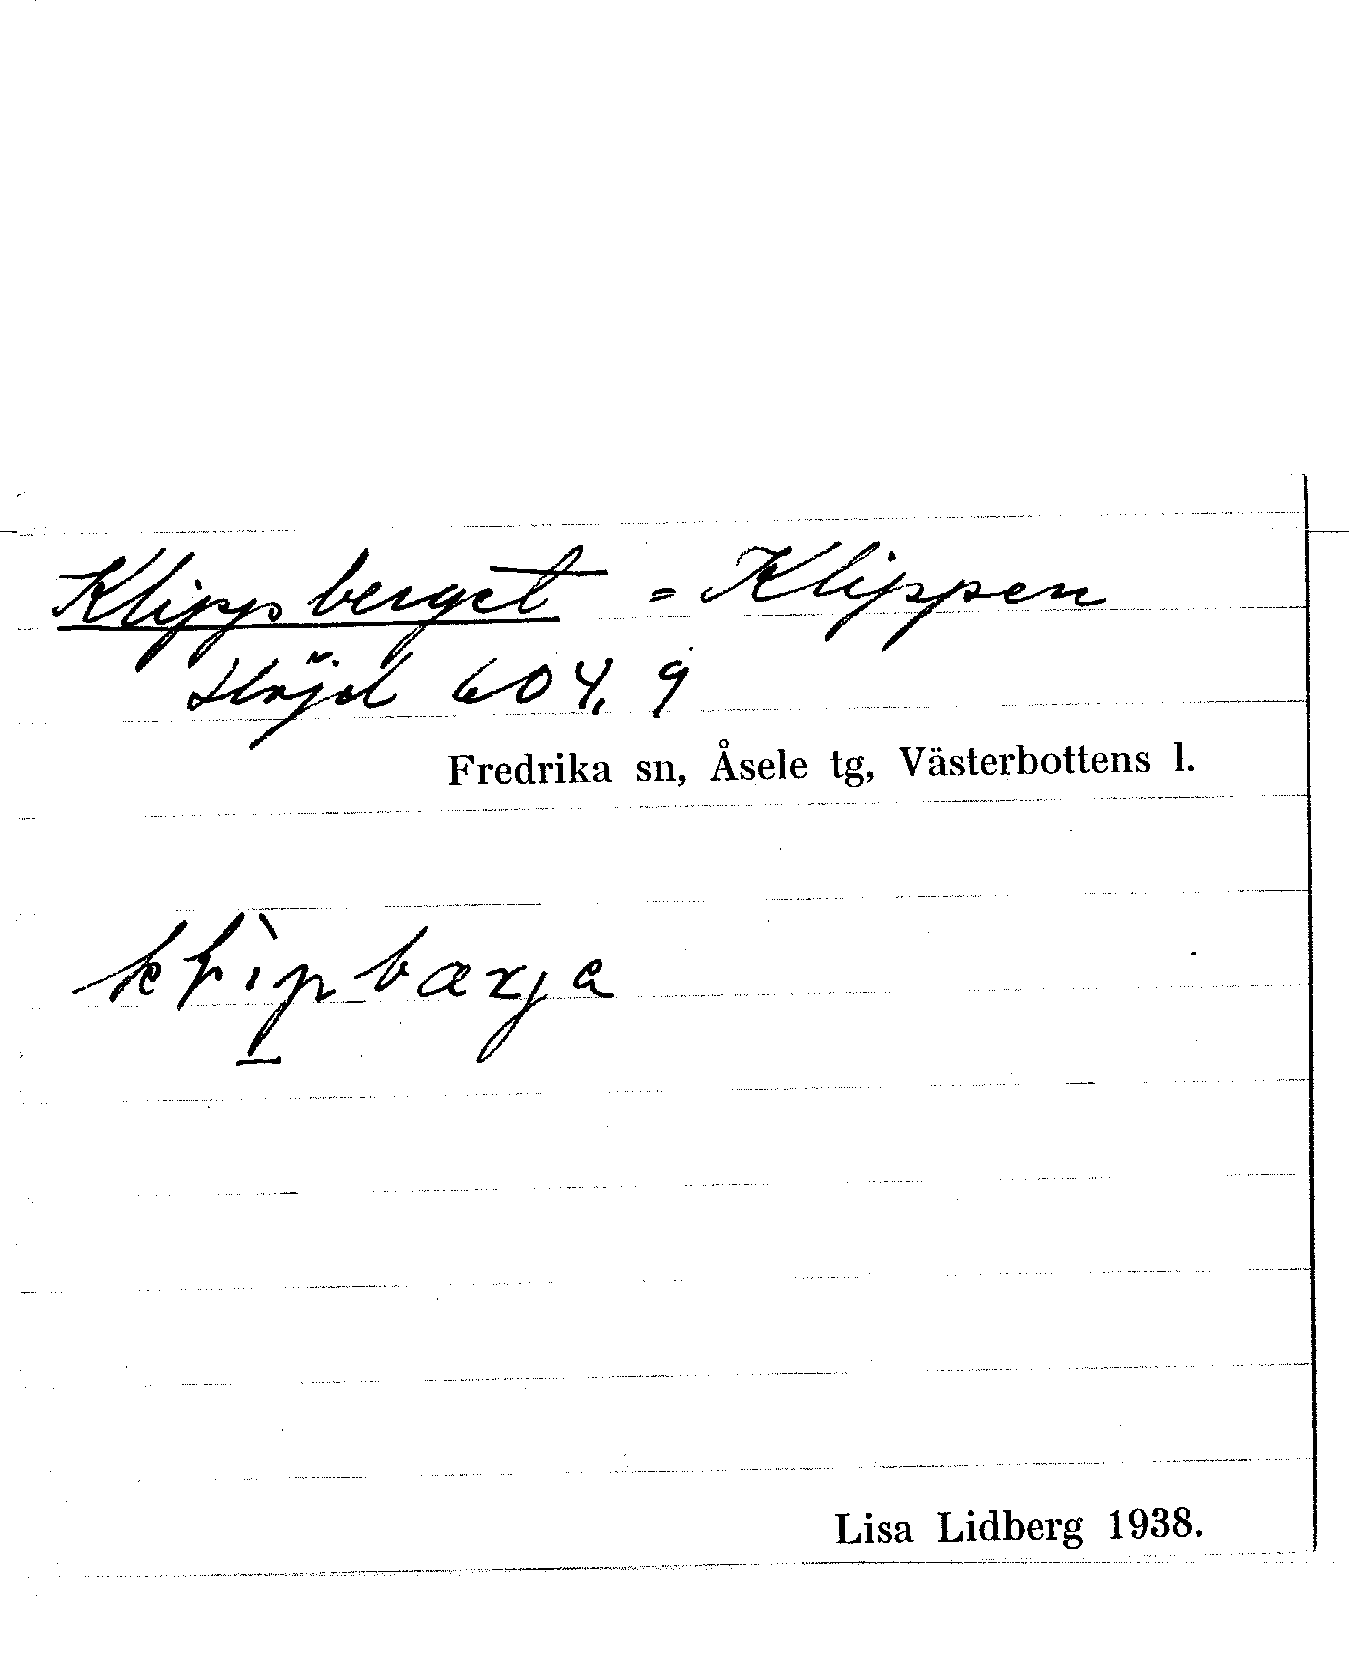 Klippsberget = Klippen
Höjd 604,9
Fredrika sn, Åsele tg, Västerbottens l.
Lisa Lidberg 1938.